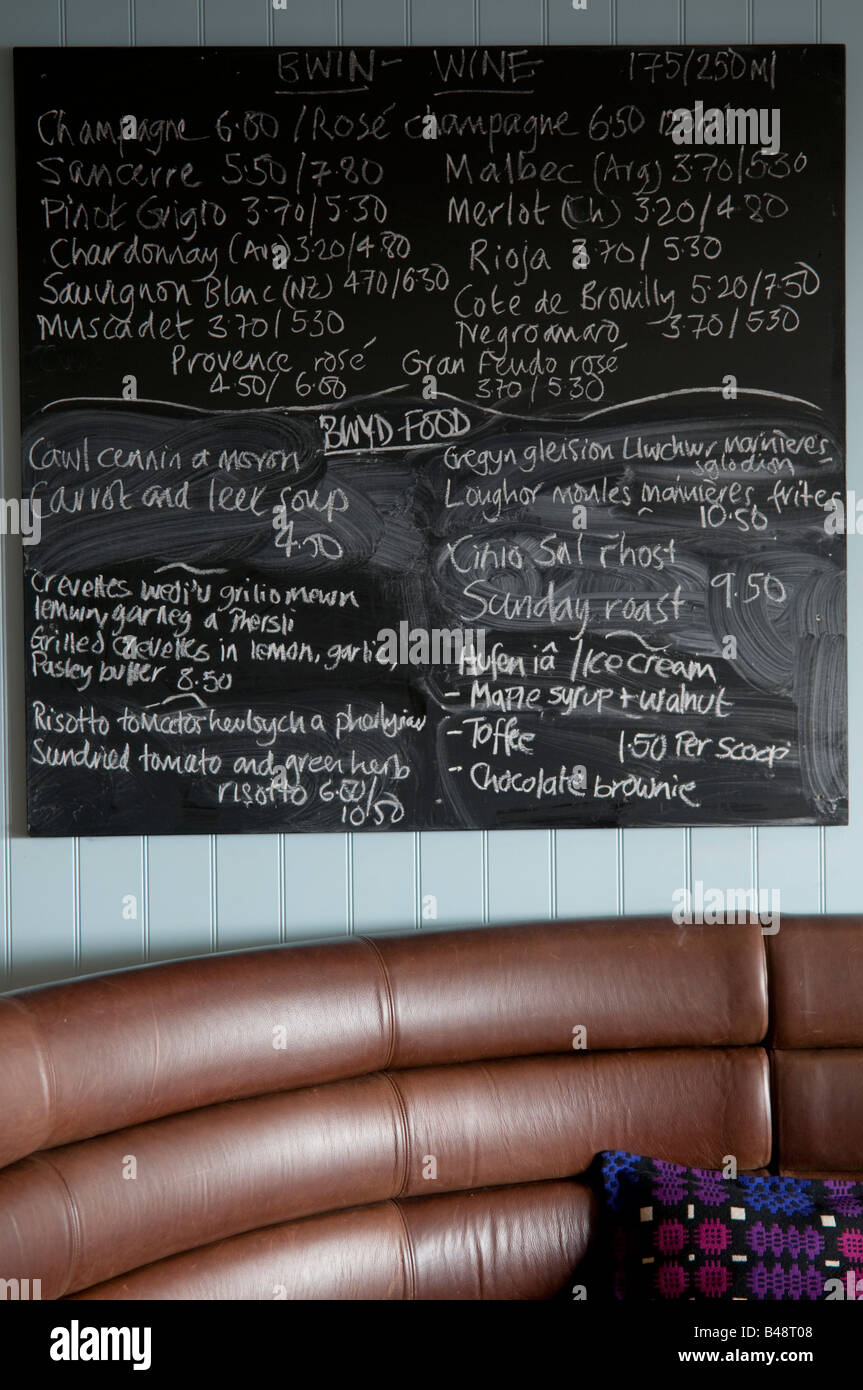 GWIN - WINE 175/250ml
Champagne 6.00 / Rosé champagne 6.50 125ml
Sancerre 5.50/7.80
Pinot Grigio 3.70/5.30
Chardonnay (Arg) 3.20/4.80
Sauvignon Blanc (NZ) 4.70/6.30
Muscadet 3.70/5.30
Malbec (Arg) 3.70/5.30
Merlot (Ch) 3.20/4.80
Rioja 3.70/5.30
Cote de Brouilly 5.20/7.50
Negroamaro 3.70/5.30
Provence rosé
4.50/6.00
Gran Feudo rosé
3.70/5.30
BWYD-FOOD
Cawl cennin a moron
Carrot and leek soup
4.50
Crevettes wedi'u grilio mewn
lemwn, garlleg a Phersli
Grilled crevettes in lemon, garlic,
Pasley butter 8.50
Risotto tomatos heulsych a pherlysiau
Sundried tomato and green herb
risotto 6.00/
10.50
Cregyn gleision Llwchwr marinières,
sglodion
Loughor moules marinières, frites
10.50
Cinio Sul rhost
Sunday roast 9.50
Hufen iâ / Ice cream
- Maple syrup + walnut
- Toffee 1.50 Per scoop
- Chocolate brownie
alamy
Image ID: B48T08
www.alamy.com